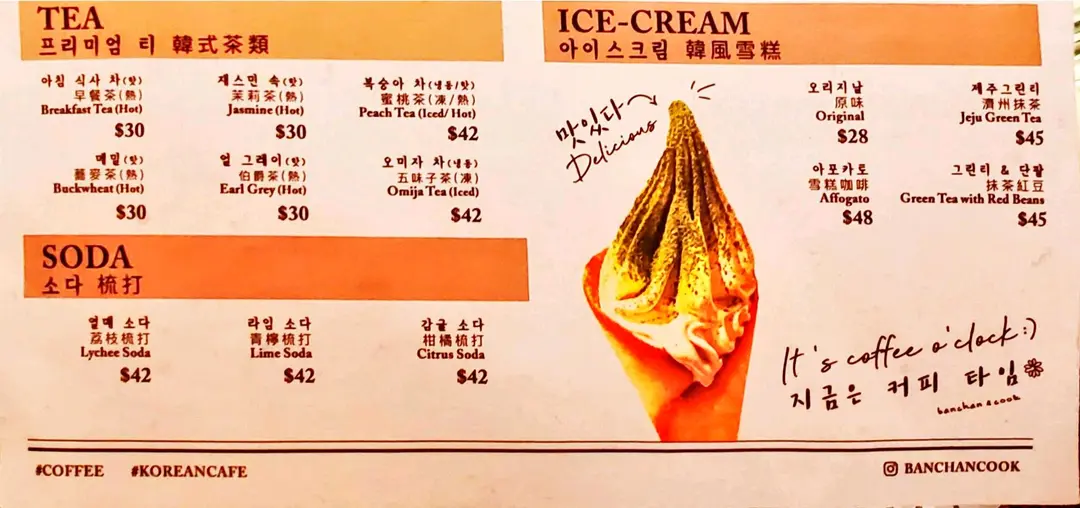 TEA
프리미엄 티 韓式茶類
아침 식사 차(핫)
早餐茶(熱)
Breakfast Tea (Hot)
$30
재스민 속(핫)
茉莉茶(熱)
Jasmine (Hot)
$30
복숭아 차(냉동/핫)
蜜桃茶(凍/熱)
Peach Tea (Iced/ Hot)
$42
메밀(핫)
蕎麥茶(熱)
Buckwheat (Hot)
$30
얼 그레이(핫)
伯爵茶(熱)
Earl Grey (Hot)
$30
오미자 차(냉동)
五味子茶(凍)
Omija Tea (Iced)
$42
SODA
소다 梳打
열매 소다
荔枝梳打
Lychee Soda
$42
라임 소다
青檸梳打
Lime Soda
$42
감귤 소다
柑橘梳打
Citrus Soda
$42
ICE-CREAM
아이스크림 韓風雪糕
맛있다
Delicious
오리지날
原味
Original
$28
제주그린티
濟州抹茶
Jeju Green Tea
$45
아포카토
雪糕咖啡
Affogato
$48
그린티 & 단팥
抹茶紅豆
Green Tea with Red Beans
$45
It's coffee o'clock:)
지금은 커피 타임
banchan & cook
#COFFEE #KOREANCAFE
BANCHANCOOK